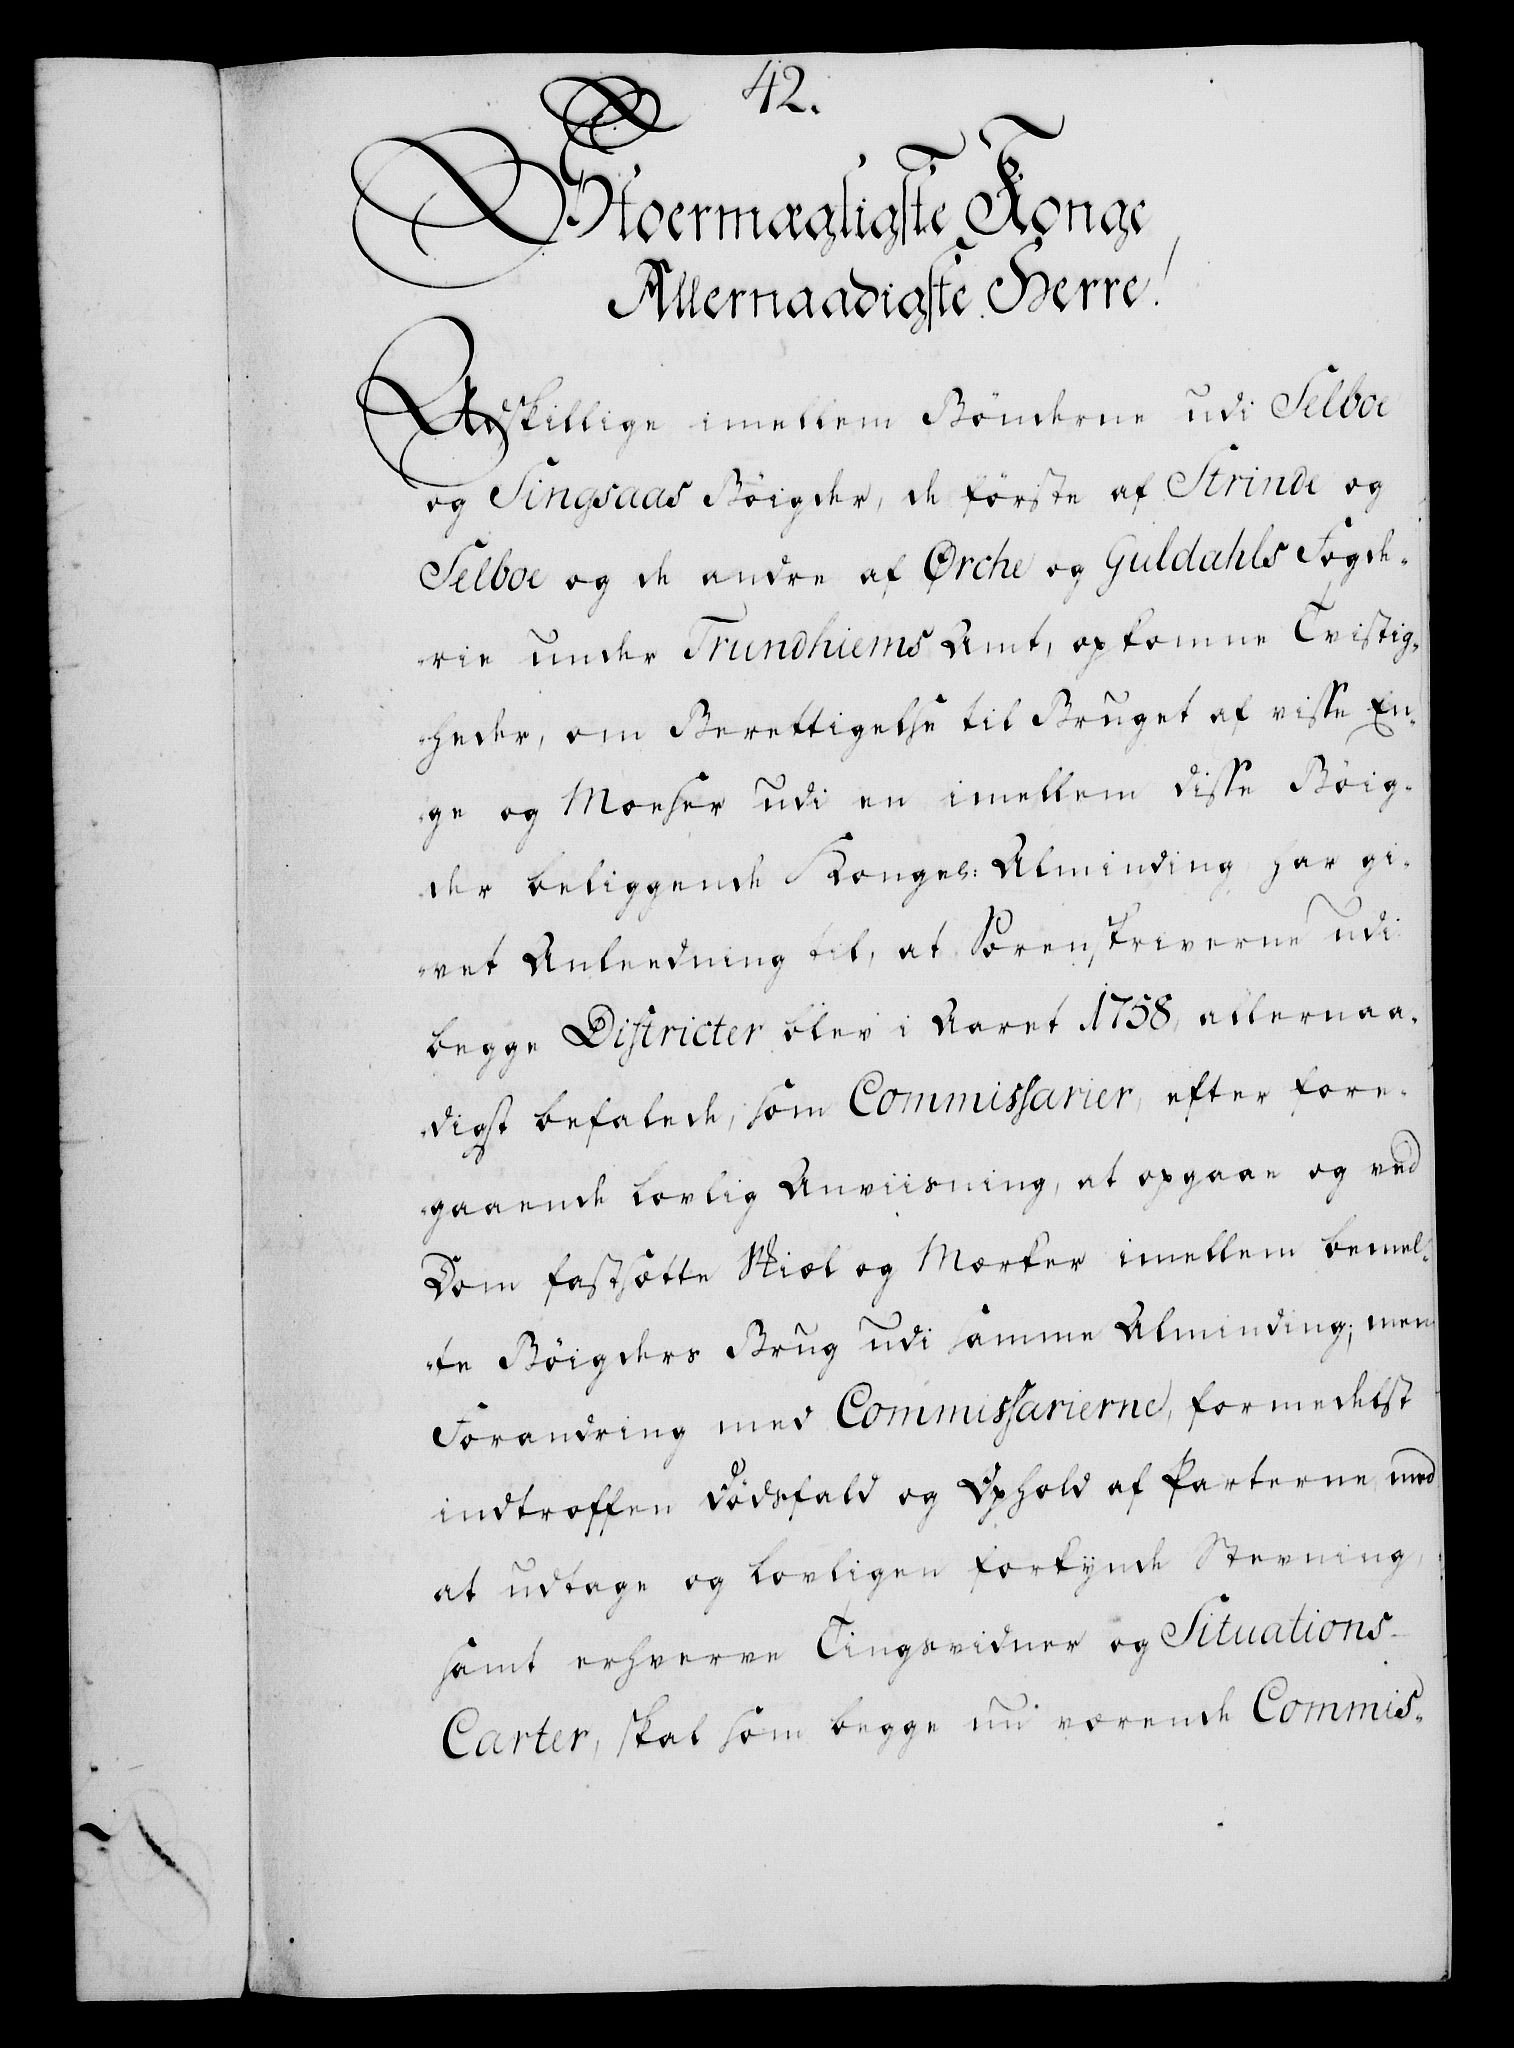 42.
Stoermægtigste Konge
Allernaadigste Herre!
Adskillige imellem Bönderne udi Selboe
og Singsaas Böigder, de förste af Strinde og
Selboe og de andre af Ørche og Guldahls Fogde-
rie under Trundhiems Amt, opkomne Tvistig-
heder, om Berettigelse til Bruget af visse En-
ge og Moeser udi en imellem disse Böig-
der beliggende Konges: Alminding har gi-
vet Anleedning til, at Sorenskriverne udi
begge Districter blev i Aaret 1758, allernaa-
digst befalede, som Commissarier, efter fore-
gaaende lovlig Anviisning, at opgaae og ved
Dom fastsætte Skiæl og Mærker imellem bemel-
te Böigders Brug udi samme Alminding; men
Forandring med Commissarierne, formedelst
indtroffen Dödsfald og Ophold af Parterne med
at udtage og lovligen forkynde Stevning,
samt erhverve Tingsvidner og Situations-
Carter, skal som begge nu værende Commis-